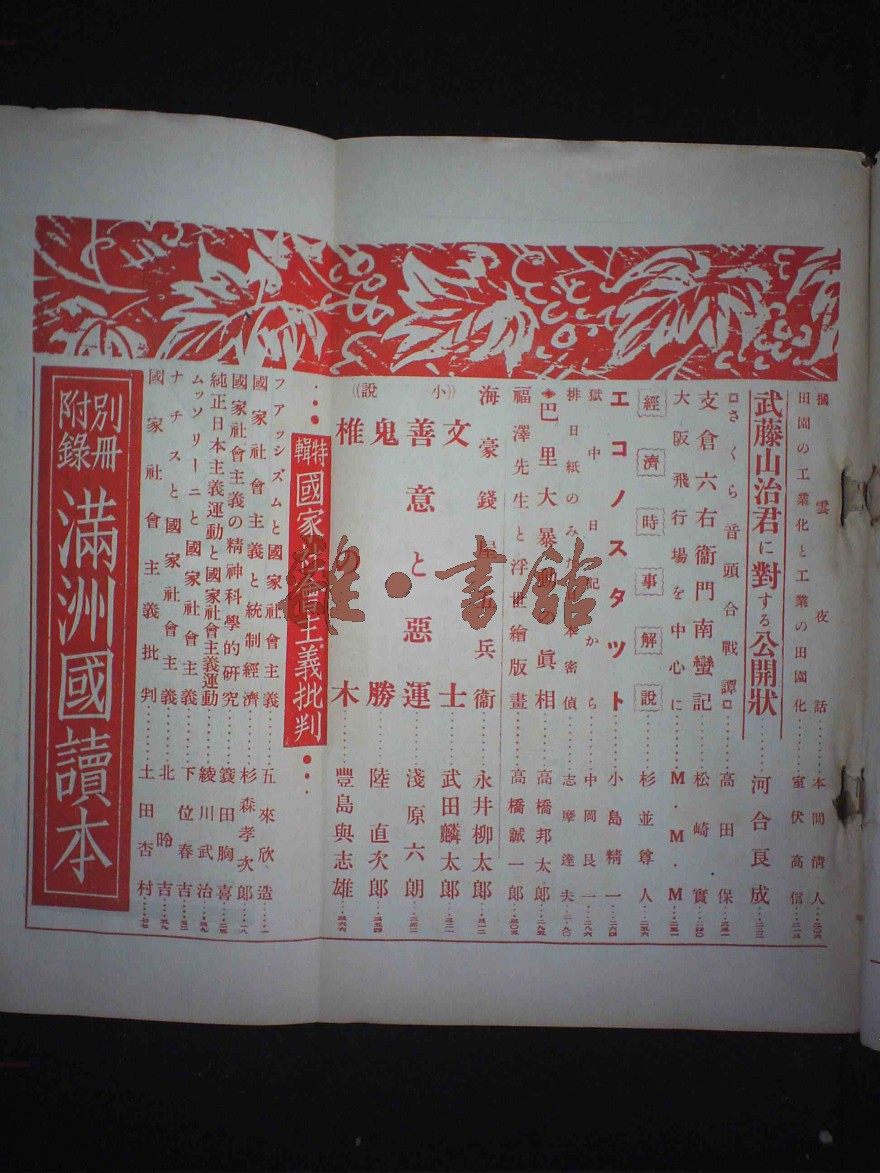 摑雲夜話……本間淸人…二〇六
田園の工業化と工業の田園化……室伏高信…二一五
武藤山治君に對する公開狀……河合良成…二三三
さくら音頭合戰譚……高田保
支倉六右衞門南蠻記……松崎實…二四〇
大阪飛行場を中心に……M・M・M
經濟時事解說……杉並尊人
エコノスタット……小島精一…二六四
獄中日記から……中岡艮一…二八六
排日紙のみた日本密偵……志摩達夫…二九〇
巴里大暴動の眞相……高橋邦太郞…二九五
福澤先生と浮世繪版畫……高橋誠一郞…三〇五
海豪錢屋五兵衞……永井柳太郞…三一二
((小說))
文士……武田麟太郞…三二一
善意と惡運……淺原六朗
鬼勝……陸直次郞
椎の木……豐島與志雄…三六六
特輯 國家社會主義批判
フアッシズムと國家社會主義……五來欣造…一
國家社會主義と統制經濟……杉森孝次郞…一八
國家社會主義の精神科學的硏究……簑田胸喜
純正日本主義運動と國家社會主義運動……綾川武治
ムッソリーニと國家社會主義……下位春吉
ナチスと國家社會主義……北昤吉
國家社會主義批判……土田杏村…六七
別冊附錄 滿洲國讀本
雅・書館